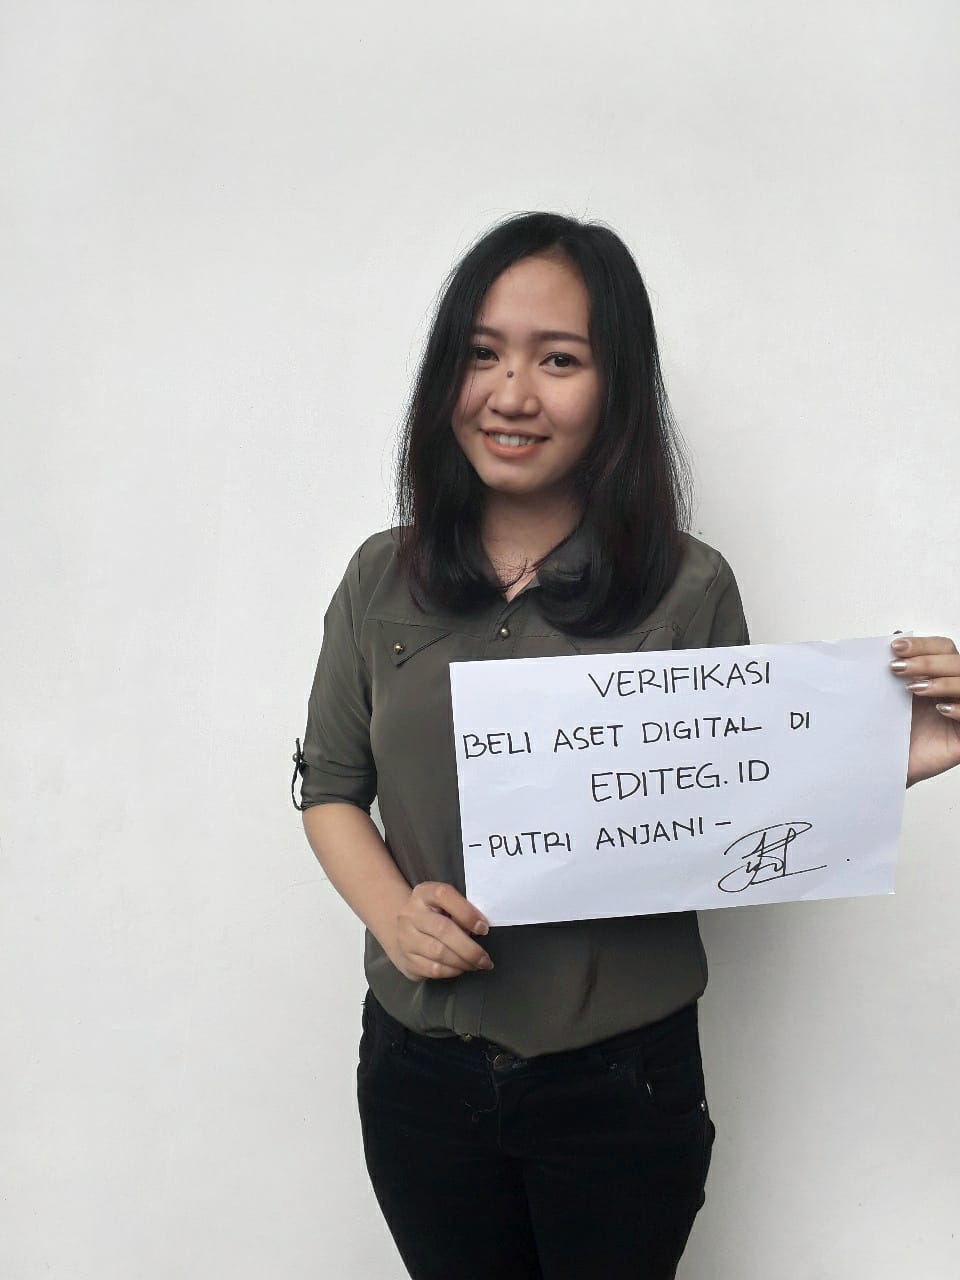 VERIFIKASI
BELI ASET DIGITAL DI
EDITEG.ID
-PUTRI ANJANI-